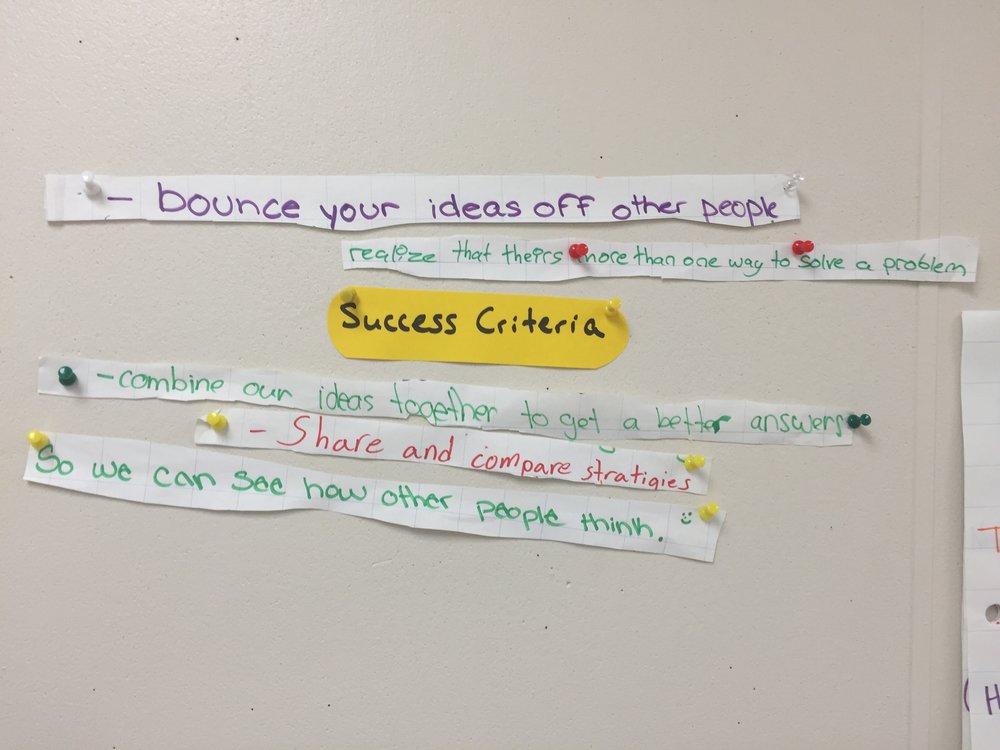 - bounce your ideas off other people
realize that theirs more than one way to solve a problem
Success Criteria
- combine our ideas together to get a better answers
- Share and compare stratigies
So we can see how other people think. :)
T
H